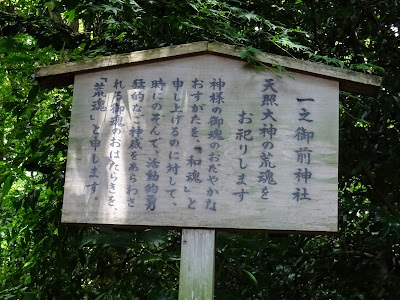 一之御前神社
天照大神の荒魂を
お祀りします
神様の御魂のおだやかな
おすがたを「和魂」と
申し上げるのに対して、
時にのぞんで、活動的勇
猛的なご神威をあらわさ
れる御魂のおはたらきを、
「荒魂」と申します。